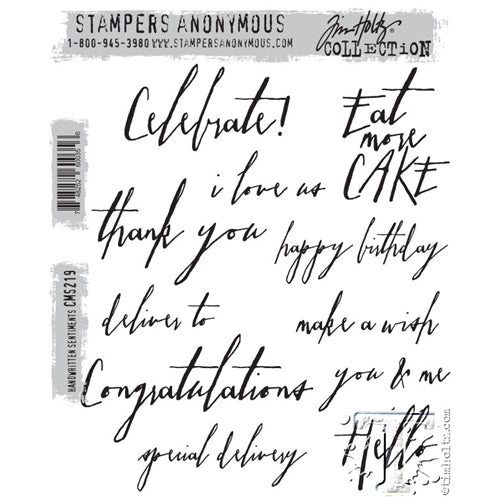 STAMPERS ANONYMOUS
1-800-945-3980 WWW.STAMPERSANONYMOUS.COM
Tim Holtz
COLLECTION
Celebrate!
Eat
more
CAKE
i love us
thank you
happy birthday
deliver to
make a wish
Congratulations
you & me
special delivery
Hello
HANDWRITTEN SENTIMENTS CMS219
©timholtz.com